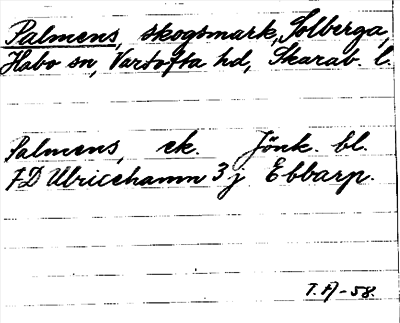 Palmens, skogsmark, Solberga,
Habo sn, Vartofta hd, Skarab. l.
Palmens, ek. Jönk. bl.
7D Ulricehamn 3j Ebbarp.
T.A-58